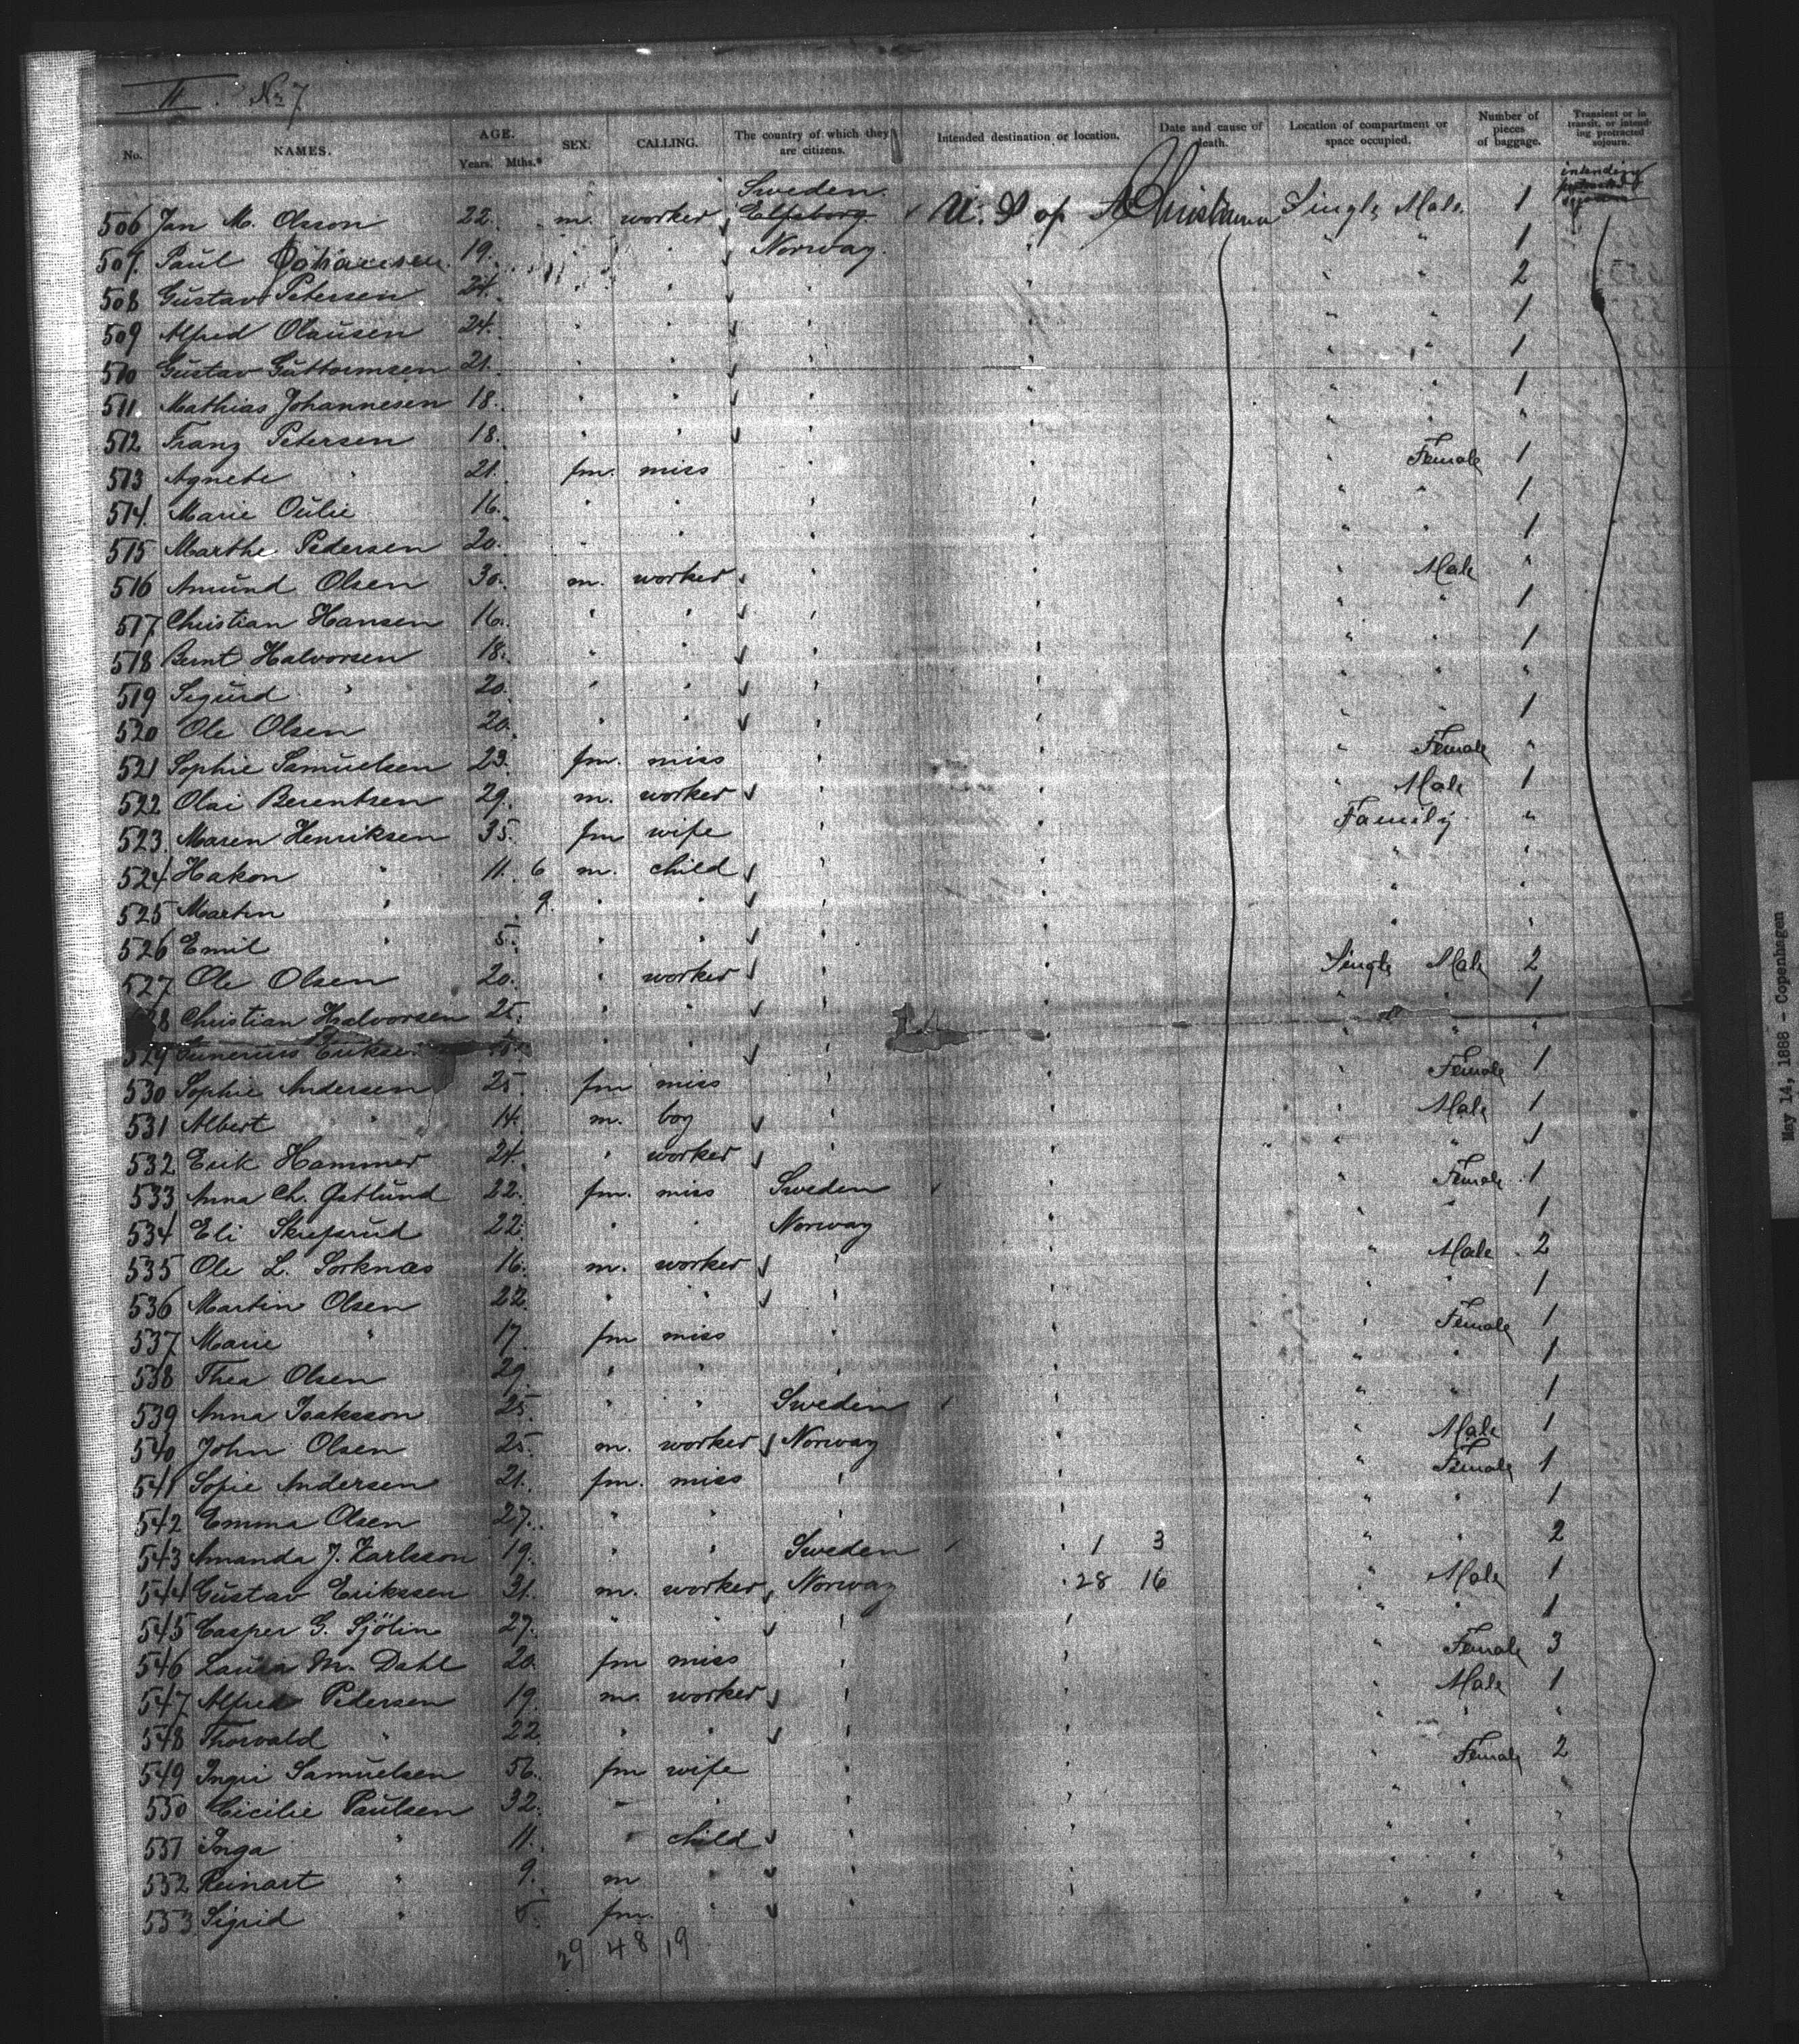 II. No 7
No. NAMES. AGE. Years. Mths. SEX. CALLING. The country of which they are citizens. Intended destination or location. Date and cause of death. Location of compartment or space occupied. Number of pieces of baggage. Transient or in transit, or intending protracted sojourn.
Sweden intending
506 Jan M. Olsson 22. m. worker Elfsborg U. S of A Christiania Single Male 1
507. Paul Johansen 19. " " Norway. " " " 1
508 Gustav Petersen 24. " " " " " " 2
509 Alfred Olausen 24. " " " " " " 1
510 Gustav Guttormsen 21. " " " " " " 1
511 Mathias Johannesen 18. " " " " " " 1
512 Franz Petersen 18. " " " " " " "
513 Agnete " 21. fm. miss " " " Female 1
514. Marie Oulie 16. " " " " " " 1
515 Marthe Pedersen 20. " " " " " " 1
516 Amund Olsen 30. m. worker " " " Male "
517 Christian Hansen 16. " " " " " " 1
518 Bernt Halvorsen 18. " " " " " " 1
519 Sigurd " 20. " " " " " " "
520 Ole Olsen 20. " " " " " " 1
521 Sophie Samuelsen 23. fm. miss " " " Female "
522 Olai Berentsen 29. m. worker " " " Male 1
523. Maren Henriksen 35. fm wife " " Family "
524 Hakon " 11. 6 m. child " " " "
525 Martin " 9. " " " " " "
526 Emil " 5. " " " " " "
527 Ole Olsen 20. " worker " " Single Male 2
8 Christian Halvorsen 25. " " " " " " 1
529 " " " " " " "
530 Sophie Andersen 25 fm miss " " " Female 1
531 Albert " 14. m. boy " " " Male 1
532 Erik Hammer 24. " worker " " " " 1
533 Anna Ch. Östlund 22. fm. miss Sweden " " Female 1
534 Eli Skrefsrud 22. " " Norway " " " 1
535 Ole L. Sorknæs 16. m. worker " " " Male 2
536 Martin Olsen 22. " " " " " " 1
537 Marie " 17. fm miss " " " Female 1
538 Thea Olsen 29. " " " " " " 1
539 Anna Isaksson 25. " " Sweden " " " 1
540 John Olsen 25. m. worker Norway " " Male 1
541 Sofie Andersen 21. fm. miss " " " Female 1
542 Emma Olsen 27. " " " " " " 1
543 Amanda J. Karlsson 19. " " Sweden " 1 3 " " 2
544 Gustav Erikssen 31. m. worker Norway " 28 16 " Male 1
545 Casper G. Sjölin 27. " " " " " " 1
546 Laura M. Dahl 20. fm miss " " " Female 3
547 Alfred Pedersen 19. m. worker " " " Male 1
548 Thorvald " 22 " " " " " " "
549 Ingri Samuelsen 56. fm wife " " " Female 2
550 Cicilie Paulsen 32. " " " " " " "
551 Inga " 11. " child " " " " "
552 Reinart " 9. m " " " " " "
553 Sigrid " 5. fm. " " " " " "
29 48 19
May 14, 1888 - Copenhagen